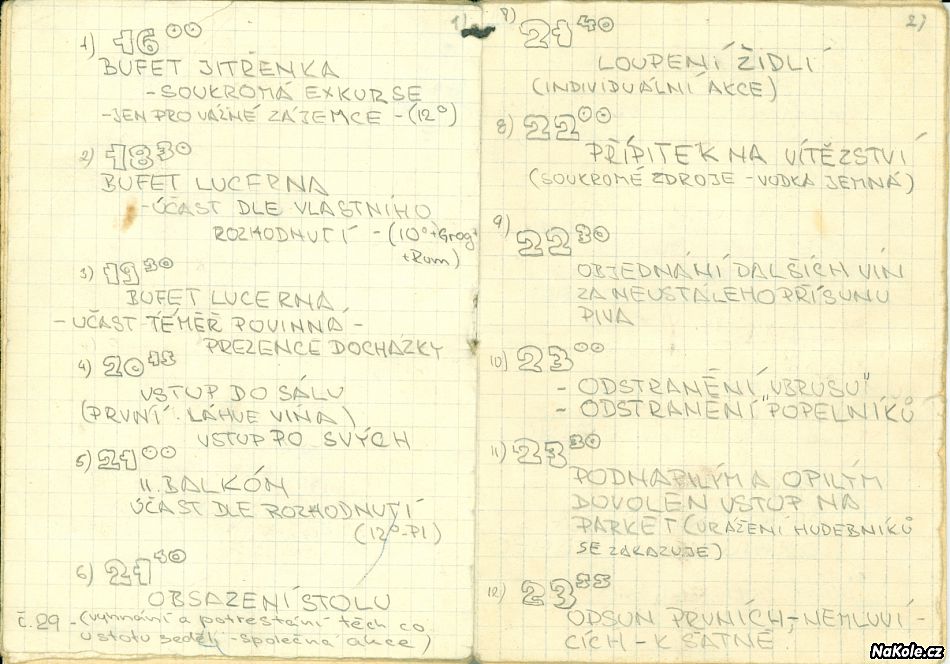 1)
1) 16⁰⁰
BUFET JITŘENKA
- SOUKROMÁ EXKURSE
- JEN PRO VÁŽNÉ ZÁJEMCE - (12°)
2) 18³⁰
BUFET LUCERNA
- ÚČAST DLE VLASTNÍHO
ROZHODNUTÍ - (10°+Grog+
+Rum)
3) 19³⁰
BUFET LUCERNA
- UČAST TÉMĚŘ POVINNÁ -
PREZENCE DOCHÁZKY
4) 20⁴⁵
VSTUP DO SÁLU
(PRVNÍ LÁHVE VÍNA)
VSTUP PO SVÝCH
5) 21⁰⁰
II. BALKÓN
ÚČAST DLE ROZHODNUTÍ
(12°-Pl)
6) 21¹⁰
OBSAZENÍ STOLU
č. 29 - (vyhnání a potrestání těch co
u stolu seděli - společná akce)
2)
7) 21⁴⁰
LOUPENÍ ŽIDLÍ
(INDIVIDUÁLNÍ AKCE)
8) 22⁰⁰
PŘÍPITEK NA VÍTĚZSTVÍ
(SOUKROMÉ ZDROJE - VODKA JEMNÁ)
9) 22³⁰
OBJEDNÁNÍ DALŠÍCH VÍN
ZA NEUSTÁLÉHO PŘÍSUNU
PIVA
10) 23⁰⁰
- ODSTRANĚNÍ „UBRUSU"
- ODSTRANĚNÍ „POPELNÍKŮ
11) 23³⁰
PODNAPILÝM A OPILÝM
DOVOLEN VSTUP NA
PARKET (URÁŽENÍ HUDEBNÍKŮ
SE ZAKAZUJE)
12) 23⁵⁵
ODSUN PRVNÍCH, - NEMLUVÍ -
CÍCH - K ŠATNĚ
NaKole.cz